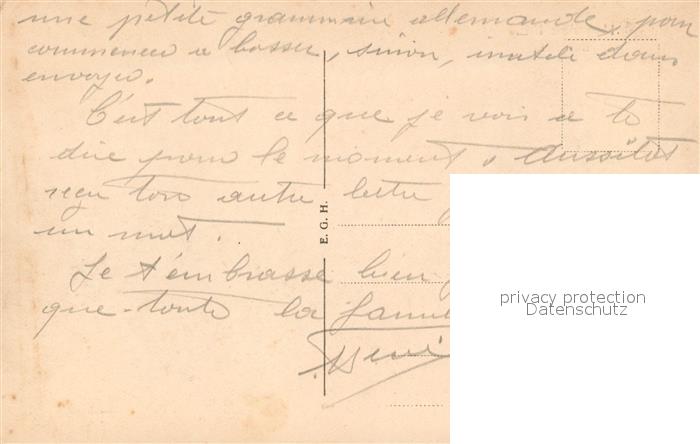 une petite grammaire allemande, pour
commencer a bosser, sinon, inutile d'en
envoyer.
C'est tout ce que je vois a te
dire pour le moment. Aussitôt
reçu ton autre lettre
un mot.
Je t'embrasse bien
que toute la fami
E. G. H.
privacy protection
Datenschutz